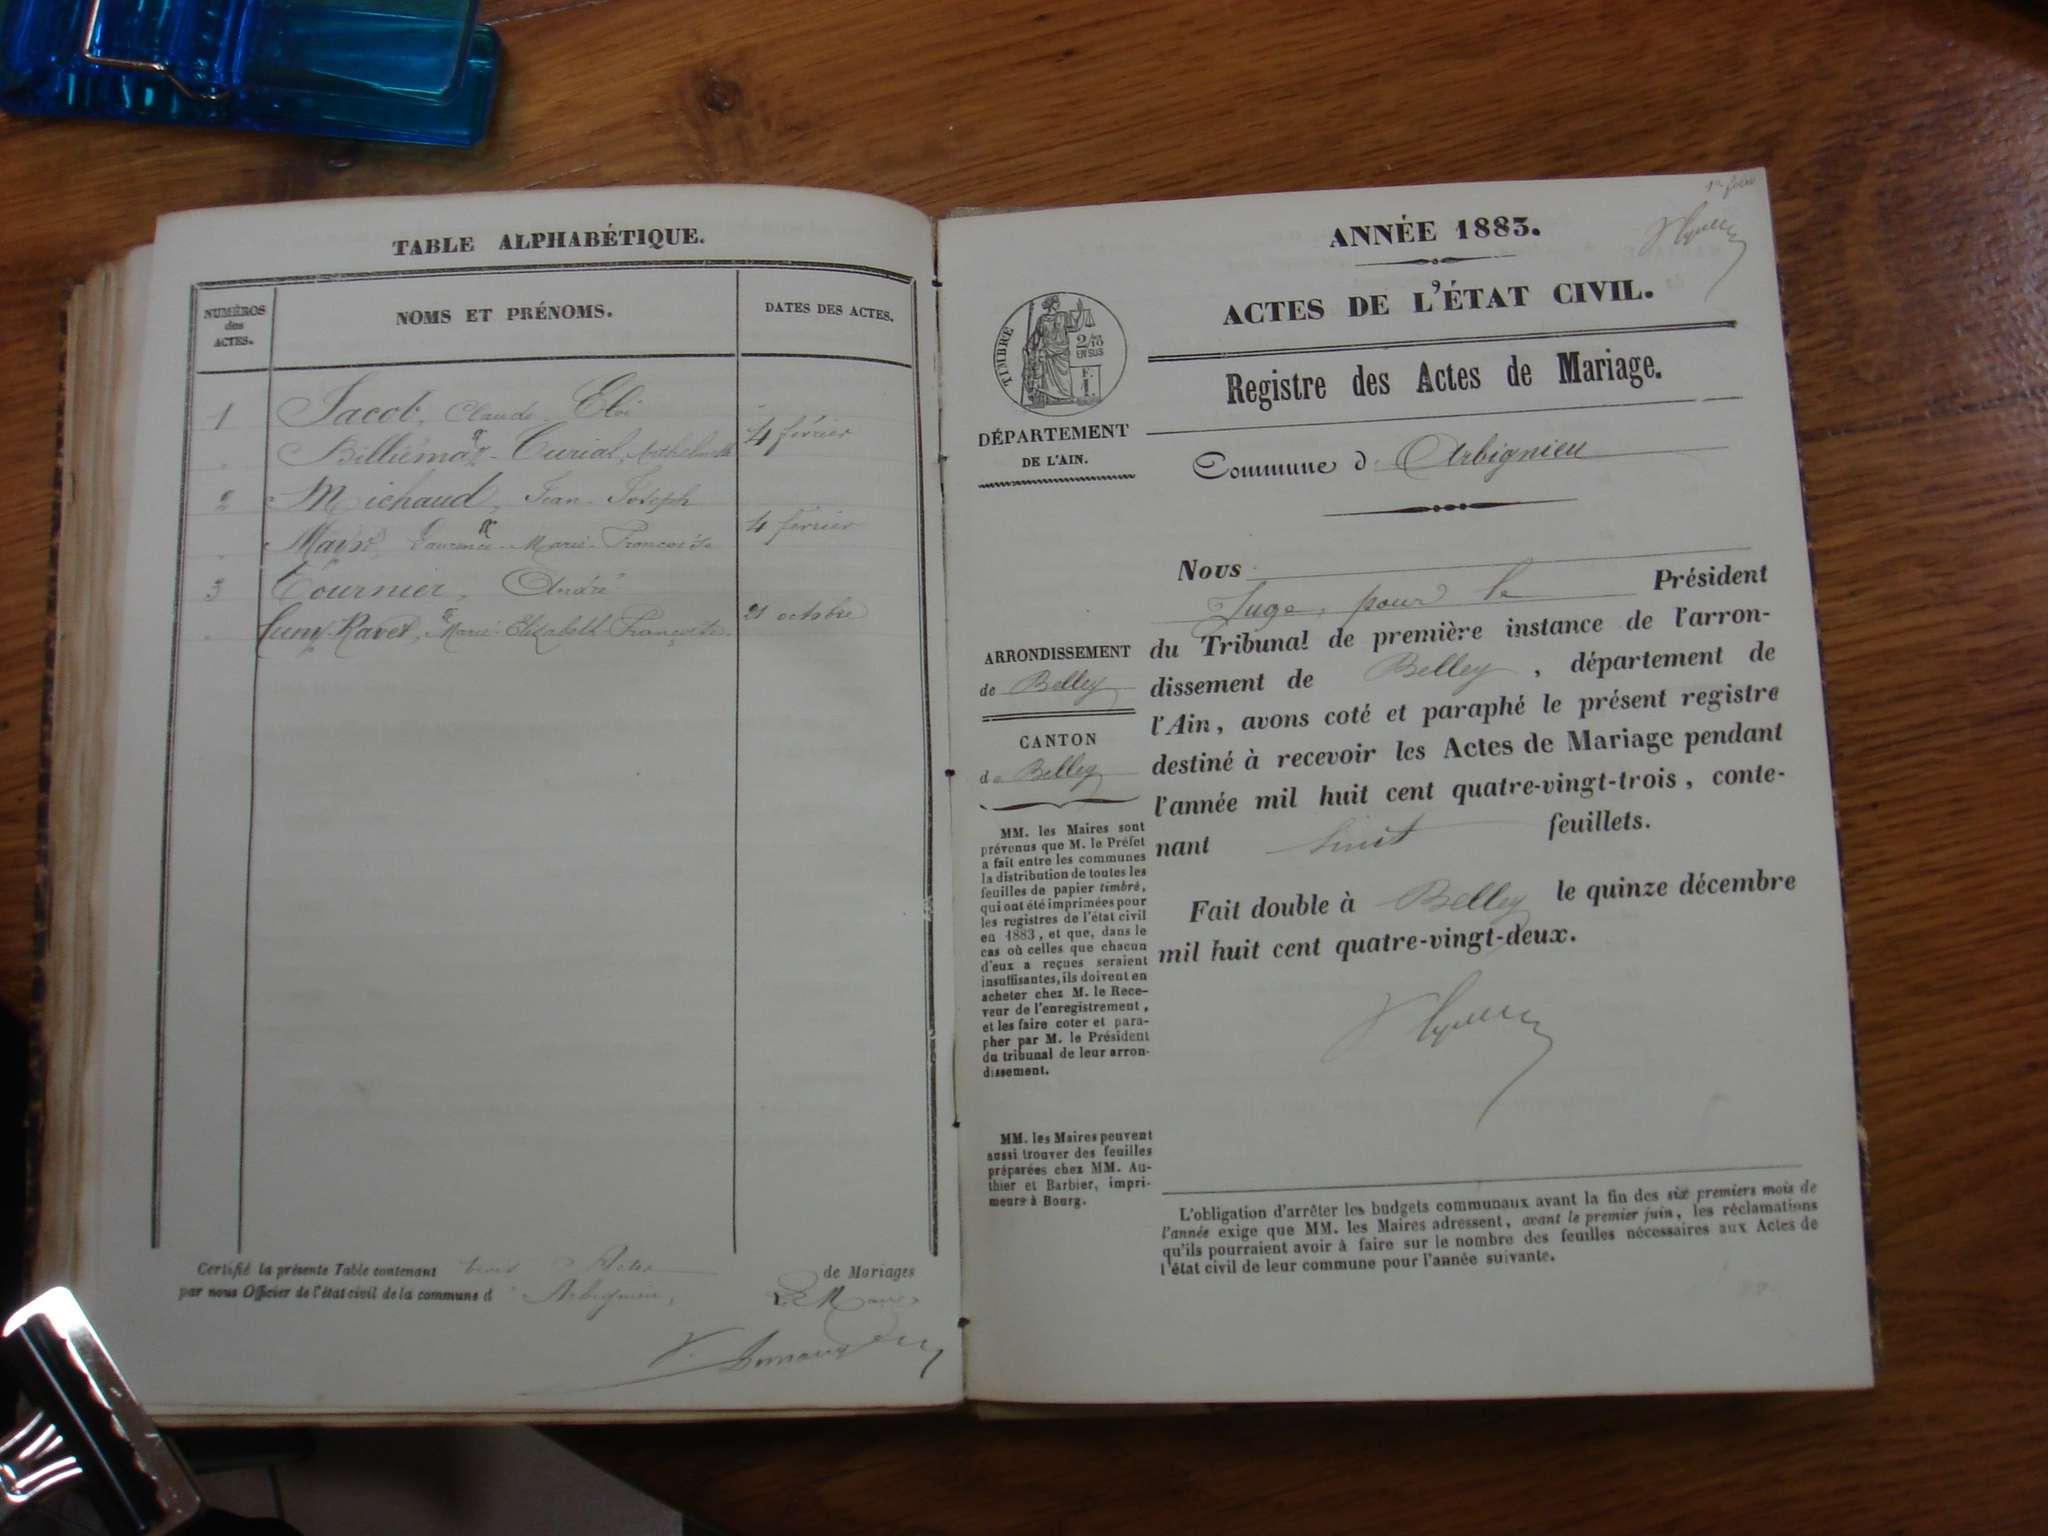 TABLE ALPHABÉTIQUE.
NUMÉROS
des
ACTES.
NOMS ET PRÉNOMS.
DATES DES ACTES.
1 Jacob, Claude Eloi
Curial,
4 février
2 Michaud, Jean-Joseph
Marie-Françoise
4 février
3 Tournier, André
Ravet, Marie-Elisabeth Françoise
21 octobre
Certifié la présente Table contenant trois Actes de Mariages
par nous Officier de l'état civil de la commune d'Arbignieu,
Le Maire
1er feuillet
ANNÉE 1883.
ACTES DE L'ÉTAT CIVIL.
TIMBRE
2/10
EN SUS
F.
1.
Registre des Actes de Mariage.
DÉPARTEMENT
DE L'AIN.
Commune d'Arbignieu
ARRONDISSEMENT
de Belley
CANTON
de Belley
MM. les Maires sont
prévenus que M. le Préfet
a fait entre les communes
la distribution de toutes les
feuilles de papier timbré,
qui ont été imprimées pour
les registres de l'état civil
en 1883, et que, dans le
cas où celles que chacun
d'eux a reçues seraient
insuffisantes, ils doivent en
acheter chez M. le Rece-
veur de l'enregistrement,
et les faire coter et para-
pher par M. le Président
du tribunal de leur arron-
dissement.
MM. les Maires peuvent
aussi trouver des feuilles
préparées chez MM. Au-
thier et Barbier, impri-
meurs à Bourg.
Nous
Juge, pour le Président
du Tribunal de première instance de l'arron-
dissement de Belley, département de
l'Ain, avons coté et paraphé le présent registre
destiné à recevoir les Actes de Mariage pendant
l'année mil huit cent quatre-vingt-trois, conte-
nant huit feuillets.
Fait double à Belley le quinze décembre
mil huit cent quatre-vingt-deux.
L'obligation d'arrêter les budgets communaux avant la fin des six premiers mois de
l'année exige que MM. les Maires adressent, avant le premier juin, les réclamations
qu'ils pourraient avoir à faire sur le nombre des feuilles nécessaires aux Actes de
l'état civil de leur commune pour l'année suivante.